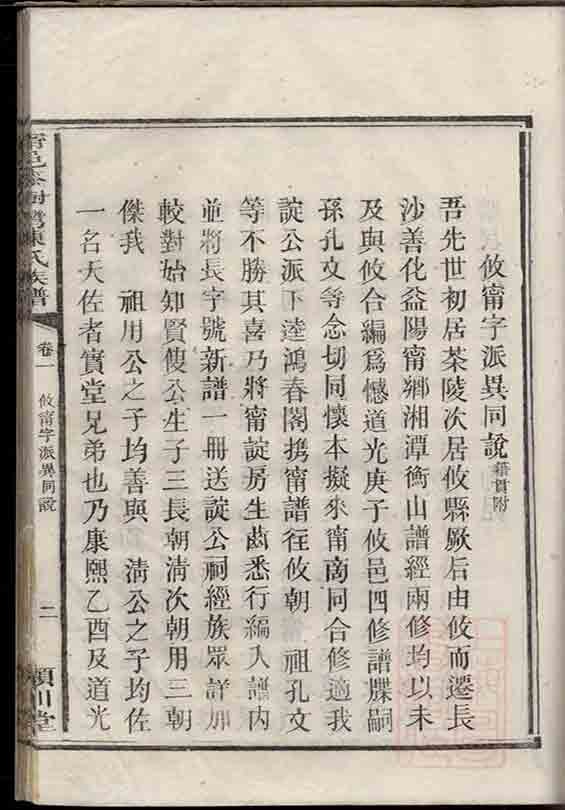 攸甯字派異同說 籍貫附
吾先世初居茶陵次居攸縣厥后由攸而遷長
沙善化益陽甯鄉湘潭衡山譜經兩修均以未
及與攸合編爲憾道光庚子攸邑四修譜牒嗣
孫孔文等念切同懷本擬來甯南同合修適我
諚公派下逵鴻春閣携甯譜往攸朝 祖孔文
等不勝其喜乃將甯諚房生齒悉行編入譜內
並將長字號新譜一冊送諚公祠經族眾詳加
較對始知賢傁公生子三長朝淸次朝用三朝
傑我 祖用公之子均善與 淸公之子均佐
一名天佐者實堂兄弟也乃康熙乙酉及道光
陳氏族譜
卷一 攸甯字派異同說
二
潁川堂